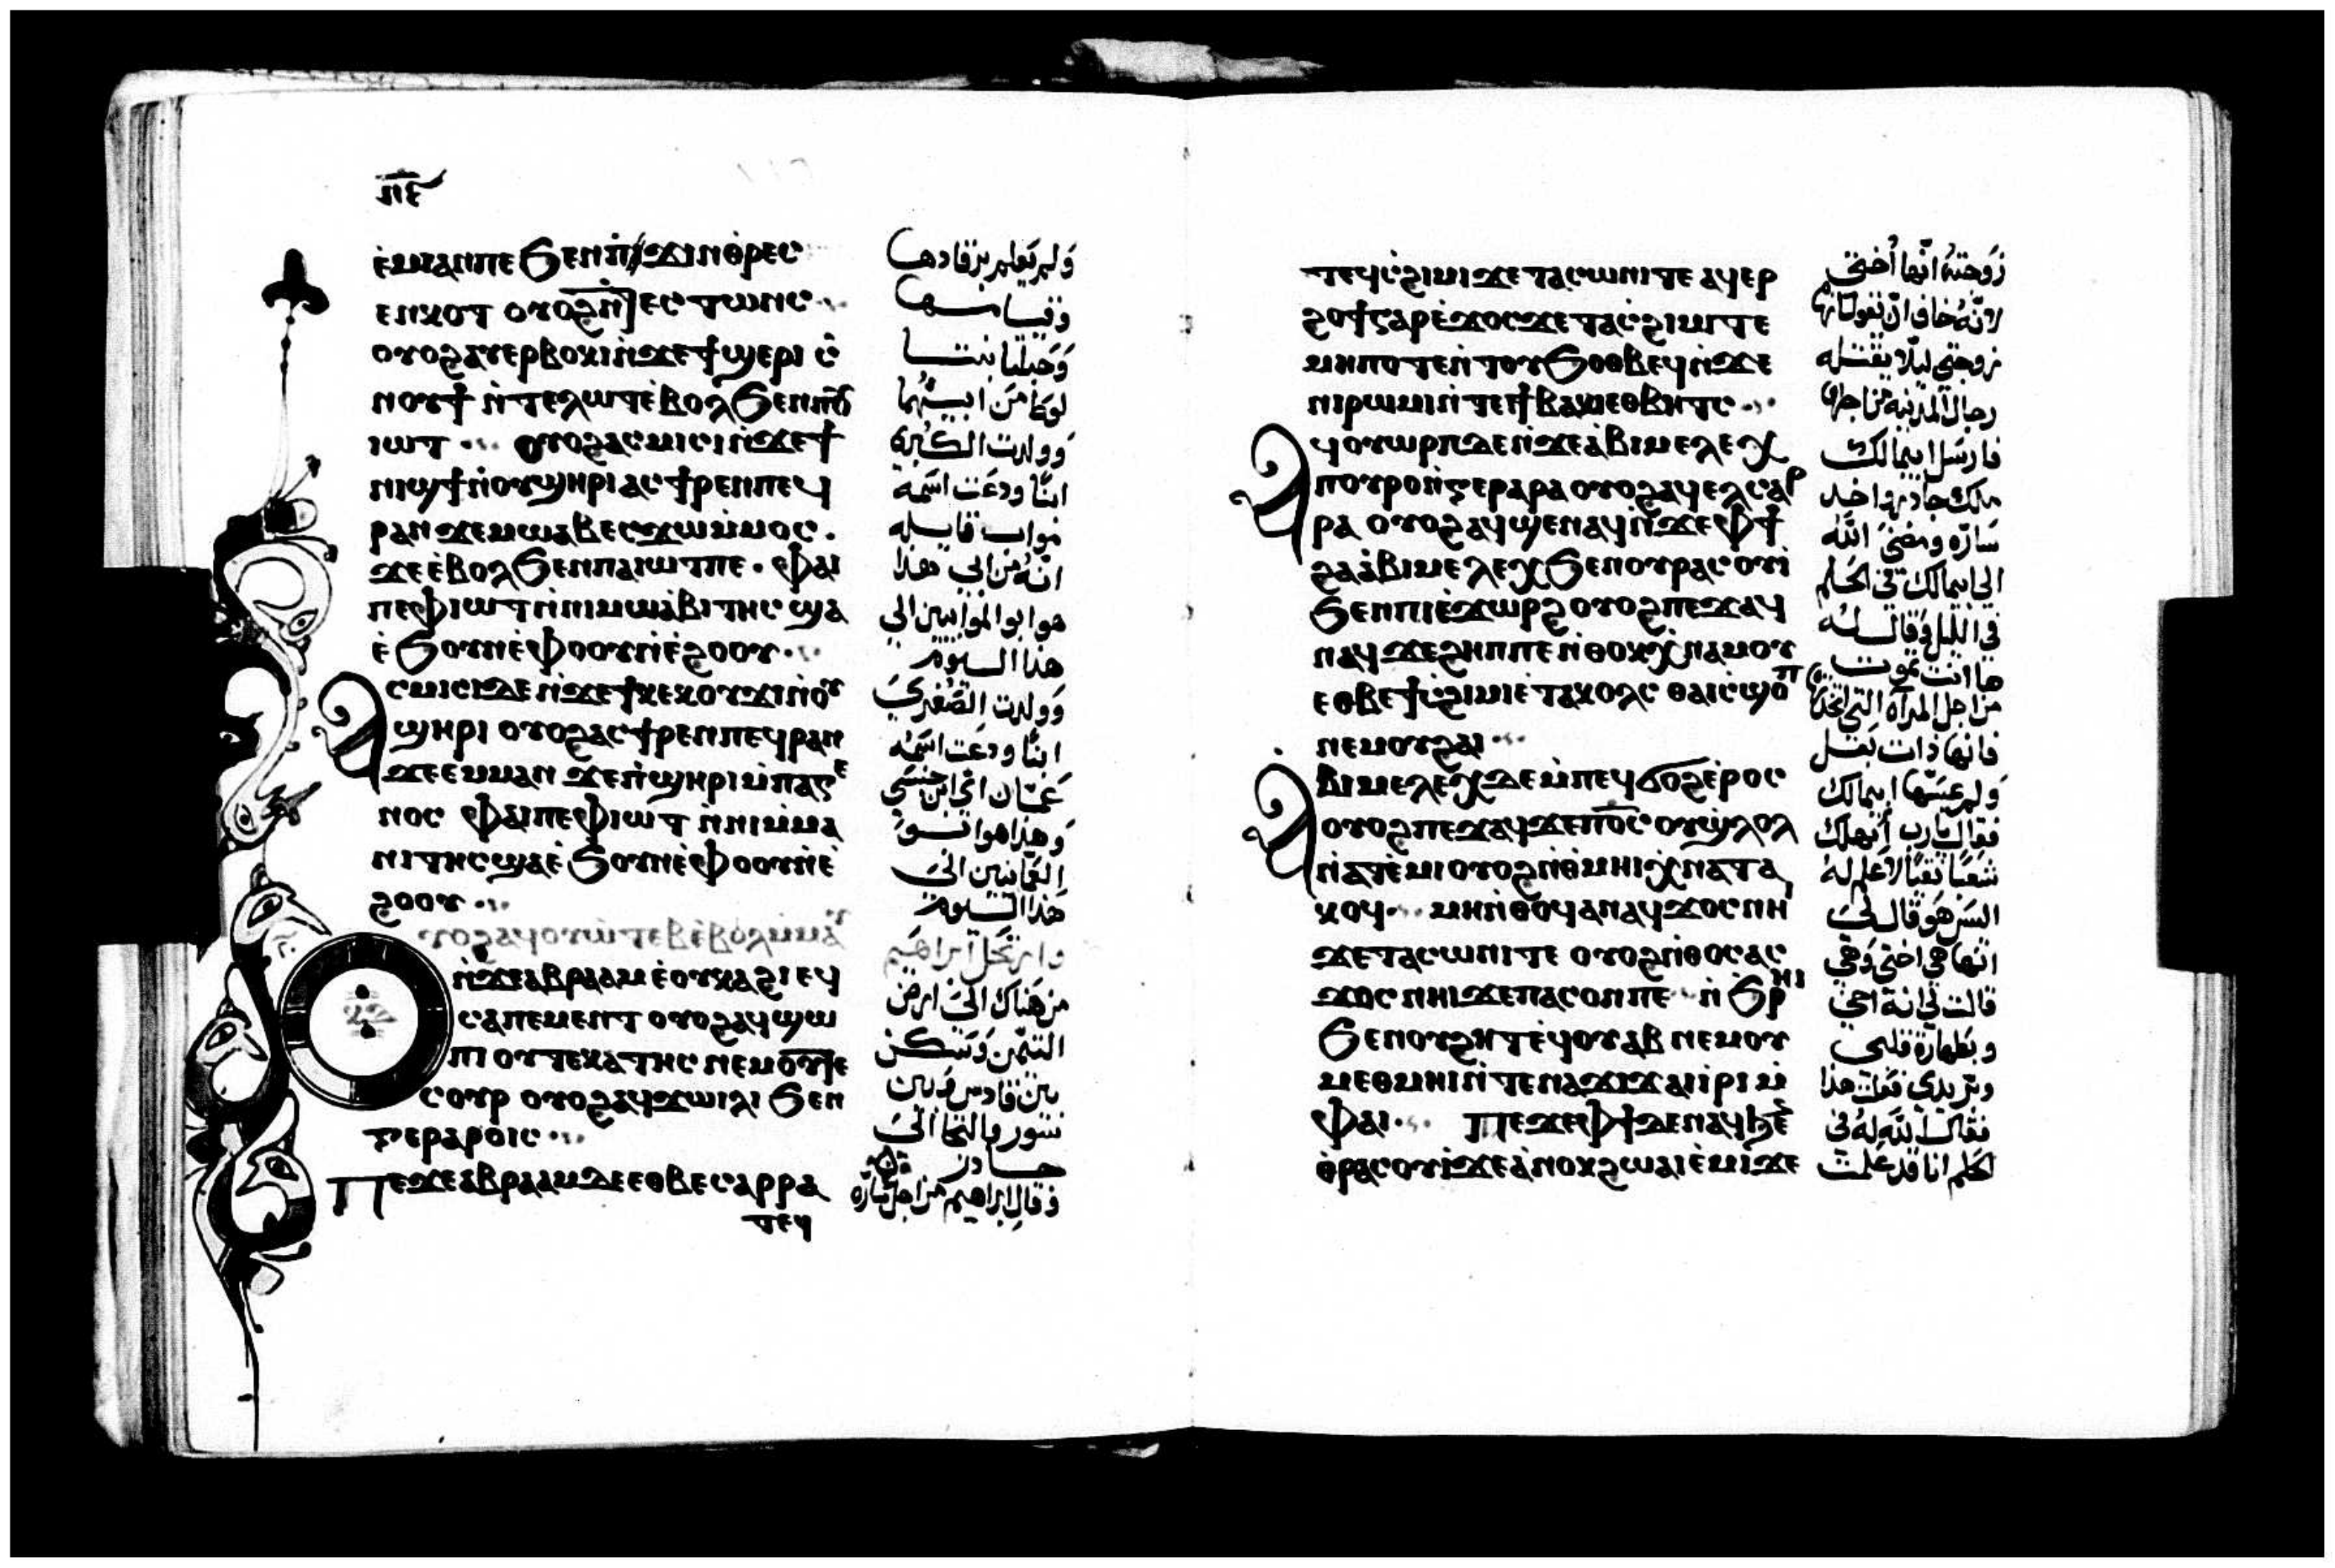 ⲡⲉ
ⲉ̇ⲙⲓⲁⲛⲡⲉ ϧⲉⲛⲡ̇ϫⲓⲛⲑ̇ⲣⲉⲥ
ⲉⲛⲕⲟⲧ ⲟⲩⲟϩ ⲉⲥ ⲧⲱⲛⲥ
ⲟⲩⲟϩⲁⲩⲉⲣⲃⲟⲕⲓⲛ̇ϫⲉϯϣⲉⲣⲓ ⲥ̇
ⲛⲟⲩϯ ⲛ̇ⲧⲉⲗⲱⲧⲉ̇ⲃⲟⲗϧⲉⲛⲡⲟⲩ
ⲓⲱⲧ ⲟⲩⲟϩⲁⲥⲙⲓⲥⲓⲛ̇ϫⲉϯ
ⲛⲓϣϯⲛ̇ⲟⲩϣⲏⲣⲓⲁⲥϯⲣⲉⲛⲡⲉϥ
ⲣⲁⲛϫⲉⲙⲱⲁⲃⲉⲥϫⲱⲙ̇ⲙⲟⲥ.
ϫⲉⲉ̇ⲃⲟⲗϧⲉⲛⲡⲁⲓⲱⲧⲡⲉ. ⲫⲁⲓ
ⲡⲉⲫⲓⲱⲧⲛ̇ⲛⲓⲙⲱⲁ̇ⲃⲓⲧⲏⲥϣⲁ
ⲉ̇ϧⲟⲩⲛⲉ̇ⲫⲟⲟⲩⲛ̇ⲉ̇ϩⲟⲟⲩ
ⲁⲥⲙⲓⲥⲓⲇⲉⲛ̇ϫⲉϯⲕⲉⲕⲟⲩϫⲓⲛ̇ⲟⲩ
ϣⲏⲣⲓ ⲟⲩⲟϩⲁⲥϯⲣⲉⲛⲡⲉϥⲣⲁⲛ
ϫⲉⲉⲙⲙⲁⲛ ϫⲉⲡ̇ϣⲏⲣⲓⲙ̇ⲡⲁⲅⲉ
ⲛⲟⲥ ⲫⲁⲓⲡⲉⲫⲓⲱⲧ ⲛ̇ⲛⲓⲙⲙⲁ
ⲛⲓⲧⲏⲥϣⲁⲉ̇ϧⲟⲩⲛⲉ̇ⲫⲟⲟⲩⲛ̇ⲉ̇
ϩⲟⲟⲩ
ⲟⲩⲟϩⲁϥⲟⲩⲱⲧⲉⲃⲉ̇ⲃⲟⲗⲙⲙⲁⲩ
ⲛ̇ϫⲉⲁⲃⲣⲁⲁⲙ ⲉ̇ⲟⲩⲕⲁϩⲓ ⲉϥ
ⲥⲁⲡⲉⲙⲉⲛⲧ ⲟⲩⲟϩⲁϥϣⲱ
ⲡⲓ ⲟⲩⲧⲉⲕⲁⲧⲏⲥ ⲛⲉⲙⲟⲩⲧⲉ
ⲥⲟⲩⲣ ⲟⲩⲟϩⲁϥϫⲱⲓⲗⲓ ϧⲉⲛ
ⲅⲉⲣⲁⲣⲟⲓⲥ
ⲡⲉϫⲉⲁⲃⲣⲁⲁⲙⲇⲉⲉⲑⲃⲉⲥⲁⲣⲣⲁ
ⲧⲉϥ
ولم يعلم برقادها
وقيامها
وحبلتا ابنتا
لوط من ابيهما
وولدت الكبيره
ابنًا ودعت اسمه
مواب قايله
انه من ابي هذا
هو ابو الموابيين الى
هذا اليوم
وولدت الصغرى
ابنًا ودعت اسمه
عمان اي ابن جنسي
وهذا هو ابو
العمانيين الى
هذا اليوم
وارتحل ابراهيم
من هناك الى ارض
التيمن وسكن
بين قادس وبين
شور والتجا الى
جادر
وقال ابراهيم من اجل ساره
ⲧⲉϥⲥ̇ϩⲓⲙⲓϫⲉⲧⲁⲥⲱⲛⲓⲧⲉ ⲁϥⲉⲣ
ϩⲟϯⲅⲁⲣⲉ̇ϫⲟⲥϫⲉⲧⲁⲥ̇ϩⲓⲙⲓⲧⲉ
ⲙⲏⲡⲟⲧⲉⲛ̇ⲧⲟⲩϧⲟⲑⲃⲉϥⲛ̇ϫⲉ
ⲛⲓⲣⲱⲙⲓⲛ̇ⲧⲉϯⲃⲁⲕⲓⲉⲑⲃⲏⲧⲥ
ⲁϥⲟⲩⲱⲣⲡⲇⲉⲛ̇ϫⲉⲁ̇ⲃⲓⲙⲉⲗⲉⲭ
ⲡⲟⲩⲣⲟⲛ̇ⲅⲉⲣⲁⲣⲁ ⲟⲩⲟϩⲁϥⲉⲗⲥⲁⲣ
ⲣⲁ ⲟⲩⲟϩⲁϥϣⲉⲛⲁϥⲛ̇ϫⲉⲫϯ
ϩⲁⲁ̇ⲃⲓⲙⲉⲗⲉⲭϧⲉⲛⲟⲩⲣⲁⲥⲟⲩⲓ̇
ϧⲉⲛⲡⲓⲉ̇ϫⲱⲣϩ ⲟⲩⲟϩⲡⲉϫⲁϥ
ⲛⲁϥϫⲉϩⲏⲡⲡⲉ ⲛ̇ⲑⲟⲕⲭ̇ⲛⲁⲙⲟⲩ
ⲉⲑⲃⲉϯⲥ̇ϩⲓⲙⲓⲉ̇ⲧⲁⲕⲟⲗⲥ ⲑⲁⲓⲥ̇ϣⲟⲡ
ⲛⲉⲙⲟⲩϩⲁⲓ
ⲁⲃⲓⲙⲉⲗⲉⲭⲇⲉⲙ̇ⲡⲉϥϭⲟϩⲉ̇ⲣⲟⲥ
ⲟⲩⲟϩⲡⲉϫⲁϥϫⲉⲡⲟ̅ⲥ̅ ⲟⲩϣ̇ⲗⲟⲗ
ⲛ̇ⲁⲧⲉ̇ⲙⲓⲟⲩⲟϩⲛ̇ⲑ̇ⲙⲏⲓⲭ̇ⲛⲁⲧⲁ
ⲕⲟϥ ⲙⲏⲛ̇ⲑⲟϥⲁⲛⲁϥϫⲟⲥⲛⲏⲓ
ϫⲉⲧⲁⲥⲱⲛⲓⲧⲉ ⲟⲩⲟϩⲛ̇ⲑⲟⲥⲁⲥ
ϫⲟⲥⲛⲏⲓϫⲉⲡⲁⲥⲟⲛⲡⲉ ⲛ̇ϧⲣⲏⲓ
ϧⲉⲛⲟⲩϩⲏⲧⲉ̇ϥⲟⲩⲁⲃ ⲛⲉⲙⲟⲩ
ⲙⲉⲑⲙⲏⲓⲛ̇ⲧⲉⲛⲁϫⲓϫⲁⲓⲓ̇ⲣⲓ ⲙ̇
ⲫⲁⲓ ⲡⲉϫⲉⲫϯⲇⲉⲛⲁϥϧⲉⲛ
ⲑ̇ⲣⲁⲥⲟⲩⲓ̇ϫⲉⲁ̇ⲛⲟⲕϩⲱⲁⲓⲉ̇ⲙⲓϫⲉ
زوجته انها اختي
لانه خاف ان يقول انها
زوجتي ليلا يقتله
رجال المدينه من اجلها
فارسل ابيمالك
ملك جادر واخد
ساره ومضى الله
الى ابيمالك في الحلم
في الليل وقال له
ها انت تموت
من اجل المرآه التي اخذتها
فانها ذات بعل
ولم يمسها ابيمالك
فقال يارب أتهلك
شعبًا تقيًا لا علم له
اليس هو قال لي
انها هي اختي وهي
قالت لي انه اخي
وبطهارة قلبي
وبر يدي فعلت هذا
فقال الله له في
الحلم انا قد علمت